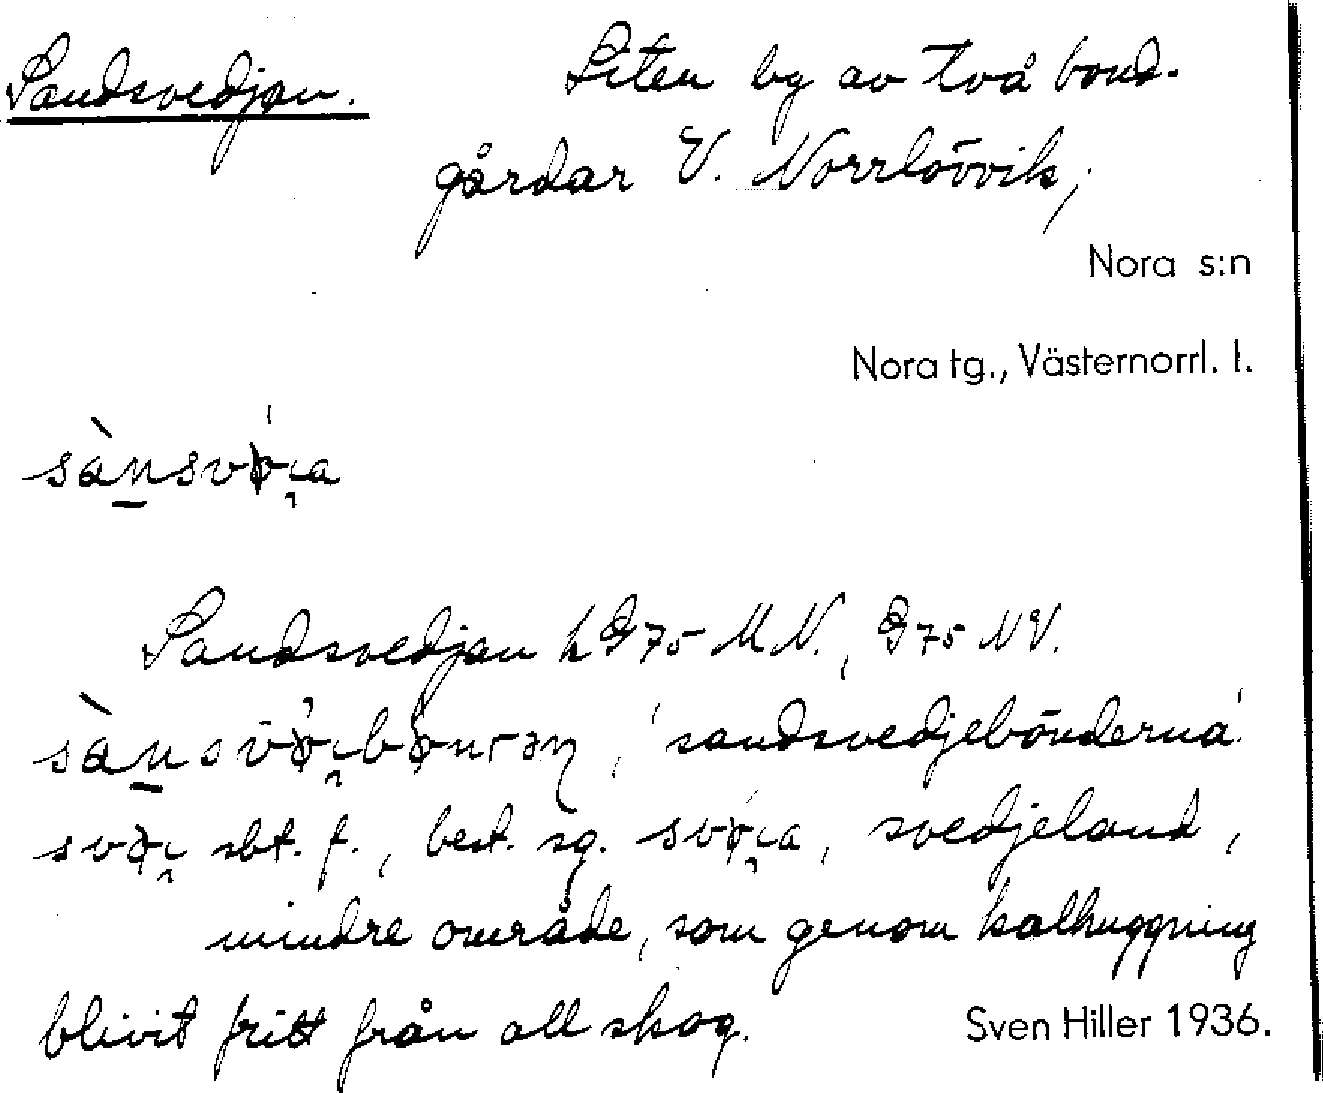 Sandsvedjan. Liten by av två bond-
gårdar V. Norrlövvik,
Nora s:n
Nora tg., Västernorrl. l.
Sandsvedjan MN., NV.
'sandsvedjebönderna'
sbt. f., best. sg. svedjeland,
mindre område, som genom kalhuggning
blivit fritt från all skog. Sven Hiller 1936.